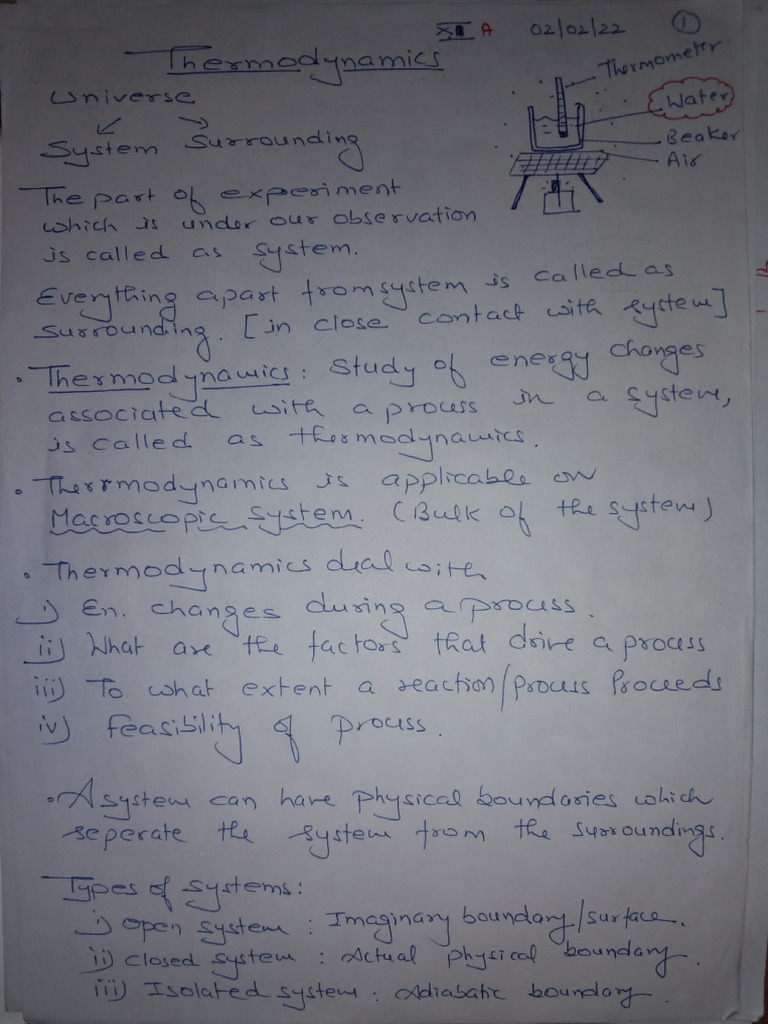 A 02/02/22 1
Thermodynamics
Thermometer
Water
Beaker
Air
Universe
System Surrounding
The part of experiment
which is under our observation
is called as system.
Everything apart from system is called as
surrounding. [in close contact with system]
• Thermodynamics : Study of energy changes
associated with a process in a system,
is called as thermodynamics.
• Thermodynamics is applicable on
Macroscopic system. (Bulk of the system)
• Thermodynamics deal with
i) En. changes during a process.
ii) What are the factors that drive a process
iii) To what extent a reaction/process proceeds
iv) feasibility of process.
• A system can have physical boundaries which
seperate the system from the surroundings.
Types of systems:
i) open system : Imaginary boundary/surface.
ii) closed system : Actual physical boundary.
iii) Isolated system : Adiabatic boundary.